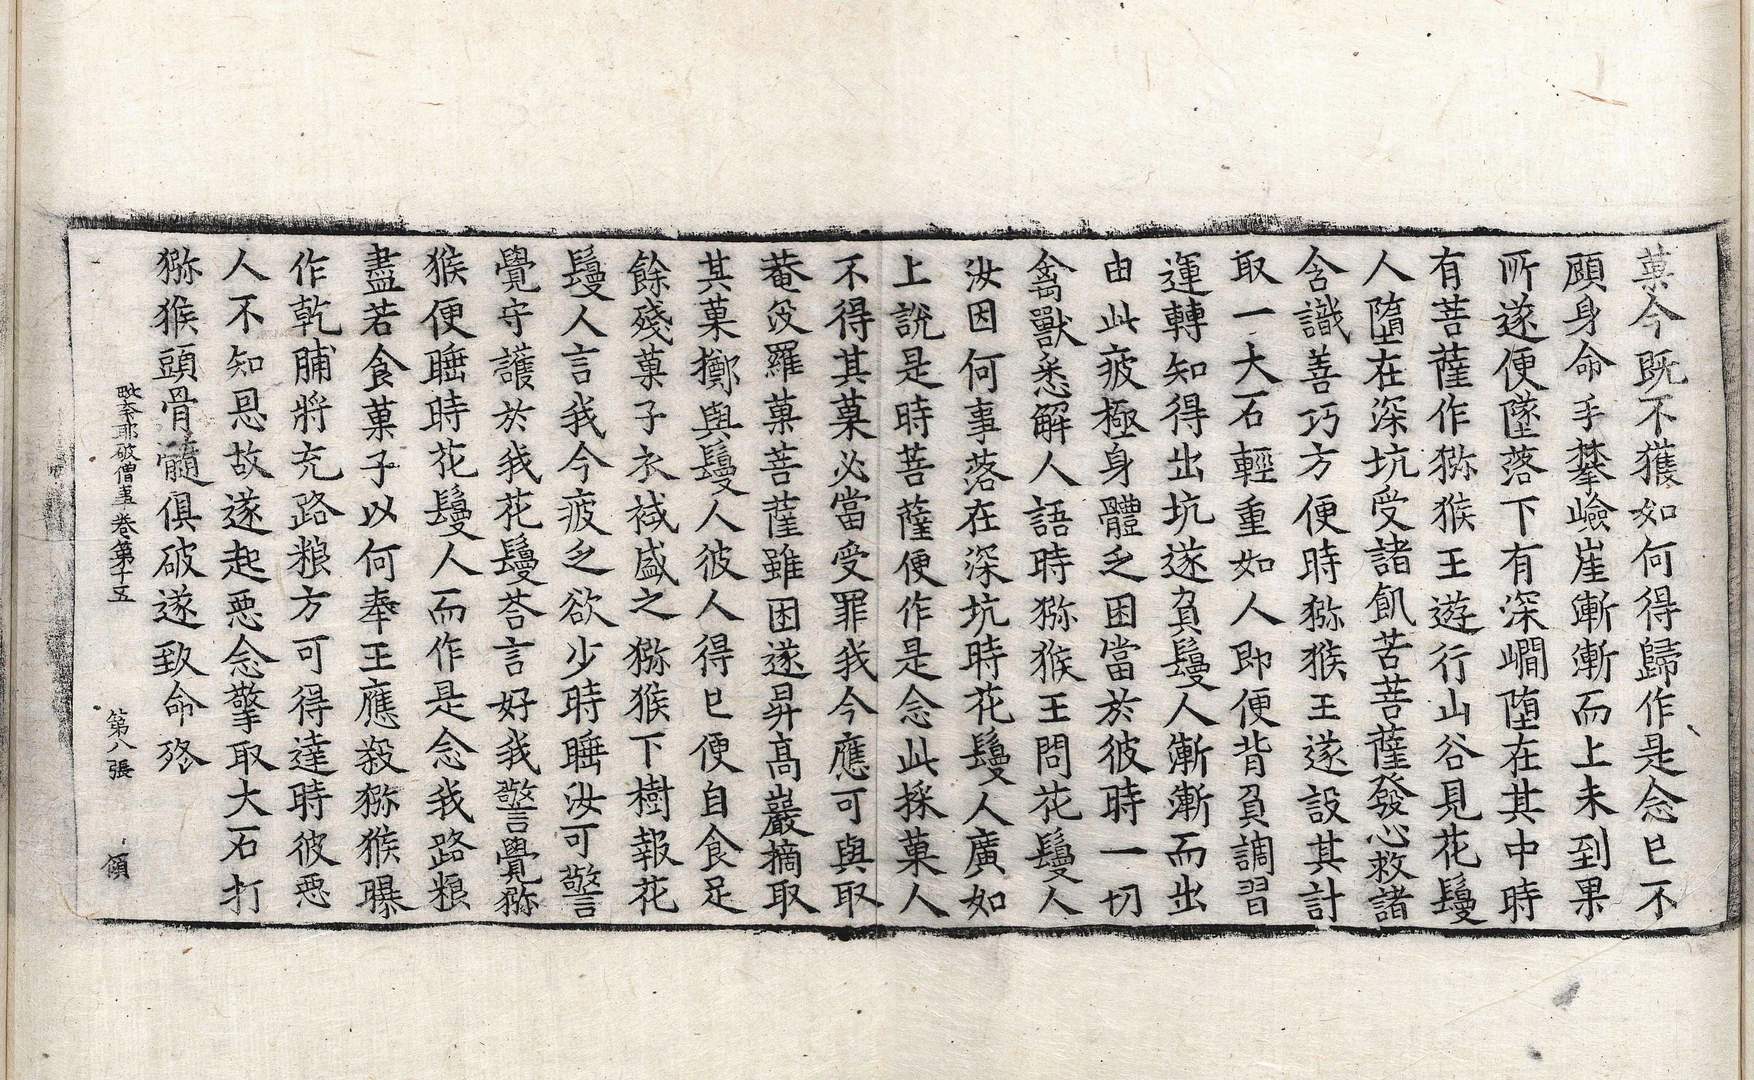 菓今既不獲如何得歸作是念已不
顧身命手攀嶮崖漸漸而上未到果
所遂便墜落下有深㵎墮在其中時
有菩薩作獼猴王遊行山谷見花鬘
人墮在深坑受諸飢苦菩薩發心救諸
含識善巧方便時獼猴王遂設其計
取一大石輕重如人即便背負調習
運轉知得出坑遂負鬘人漸漸而出
由此疲極身體乏困當於彼時一切
禽獸悉解人語時獼猴王問花鬘人
汝因何事落在深坑時花鬘人廣如
上說是時菩薩便作是念此採菓人
不得其菓必當受罪我今應可與取
菴沒羅菓菩薩雖困遂昇高巖摘取
其菓擲與鬘人彼人得已便自食足
餘殘菓子衣裓盛之獼猴下樹報花
鬘人言我今疲乏欲少時睡汝可警
覺守護於我花鬘荅言好我警覺獼
猴便睡時花鬘人而作是念我路粮
盡若食菓子以何奉王應殺獼猴曝
作乾脯將充路粮方可得達時彼惡
人不知恩故遂起惡念擎取大石打
獼猴頭骨髓俱破遂致命終
毗奈耶破僧事卷第十五　第八張　頎